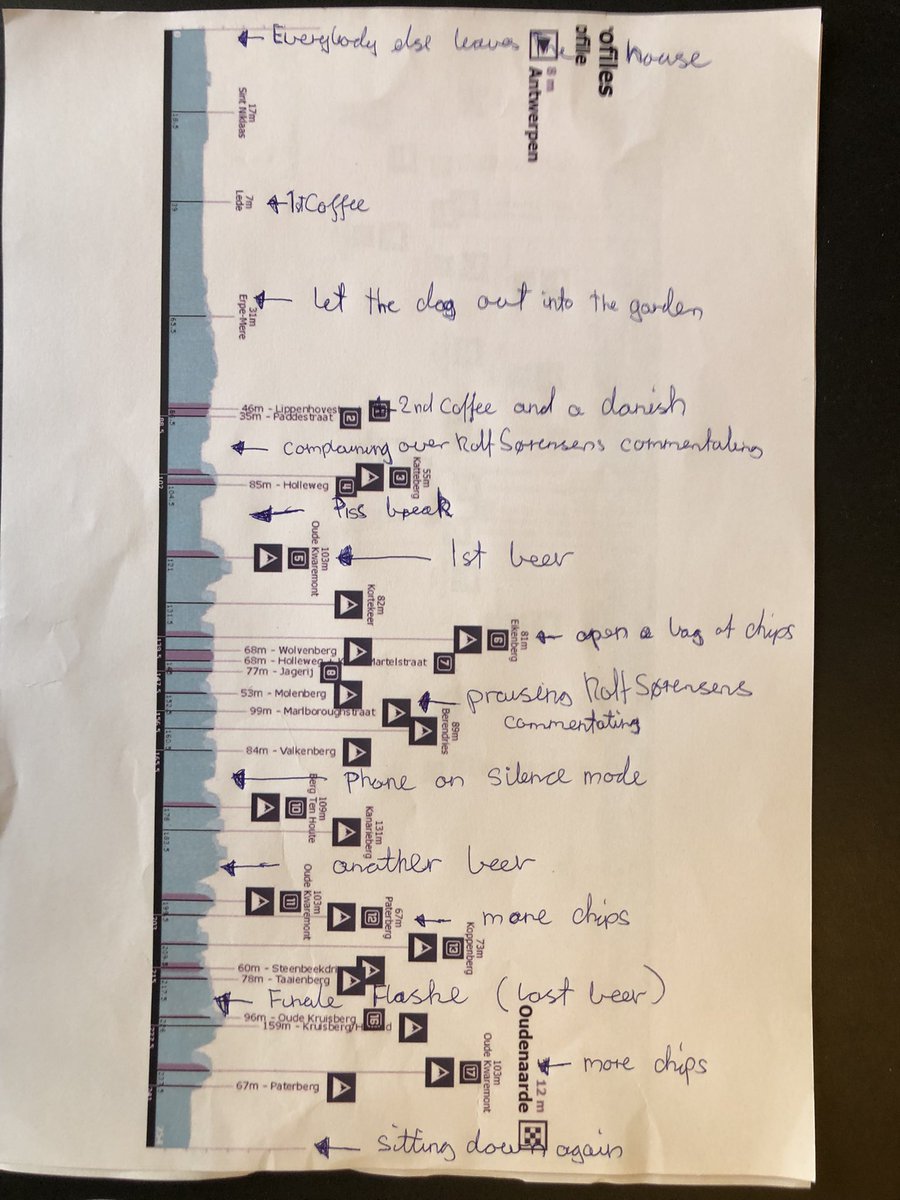 ofiles
ofile
8 m Antwerpen
← Everybody else leaves house
17m
Sint Niklaas
18.5
7m
Lede
39
← 1st Coffee
31m
Erpe-Mere
65.5
← Let the dog out into the garden
46m - Lippenhoves
1
← 2nd coffee and a danish
35m - Paddestraat
2
← complaining over Rolf Sørensens commentating
55m
Katteberg
3
85m - Holleweg
4
104.5
← Piss break
103m
Oude Kwaremont
5
121
← 1st beer
82m
Kortekeer
131.5
81m
Eikenberg
6
← open a bag of chips
68m - Wolvenberg
68m - Holleweg
Martelstraat
7
77m - Jagerij
8
53m - Molenberg
← praising Rolf Sørensens
commentating
99m - Marlboroughstraat
89m
Berendries
84m - Valkenberg
← Phone on silence mode
109m
Berg Ten Houte
10
178
131m
Kanarieberg
183.5
← another beer
103m
Oude Kwaremont
11
67m
Paterberg
12
← more chips
73m
Koppenberg
13
60m - Steenbeekdr
78m - Taaienberg
← Finale Flaske (last beer)
96m - Oude Kruisberg
16
159m - Kruisberg/H
103m
Oude Kwaremont
17
12 m
Oudenaarde
← more chips
67m - Paterberg
← sitting down again